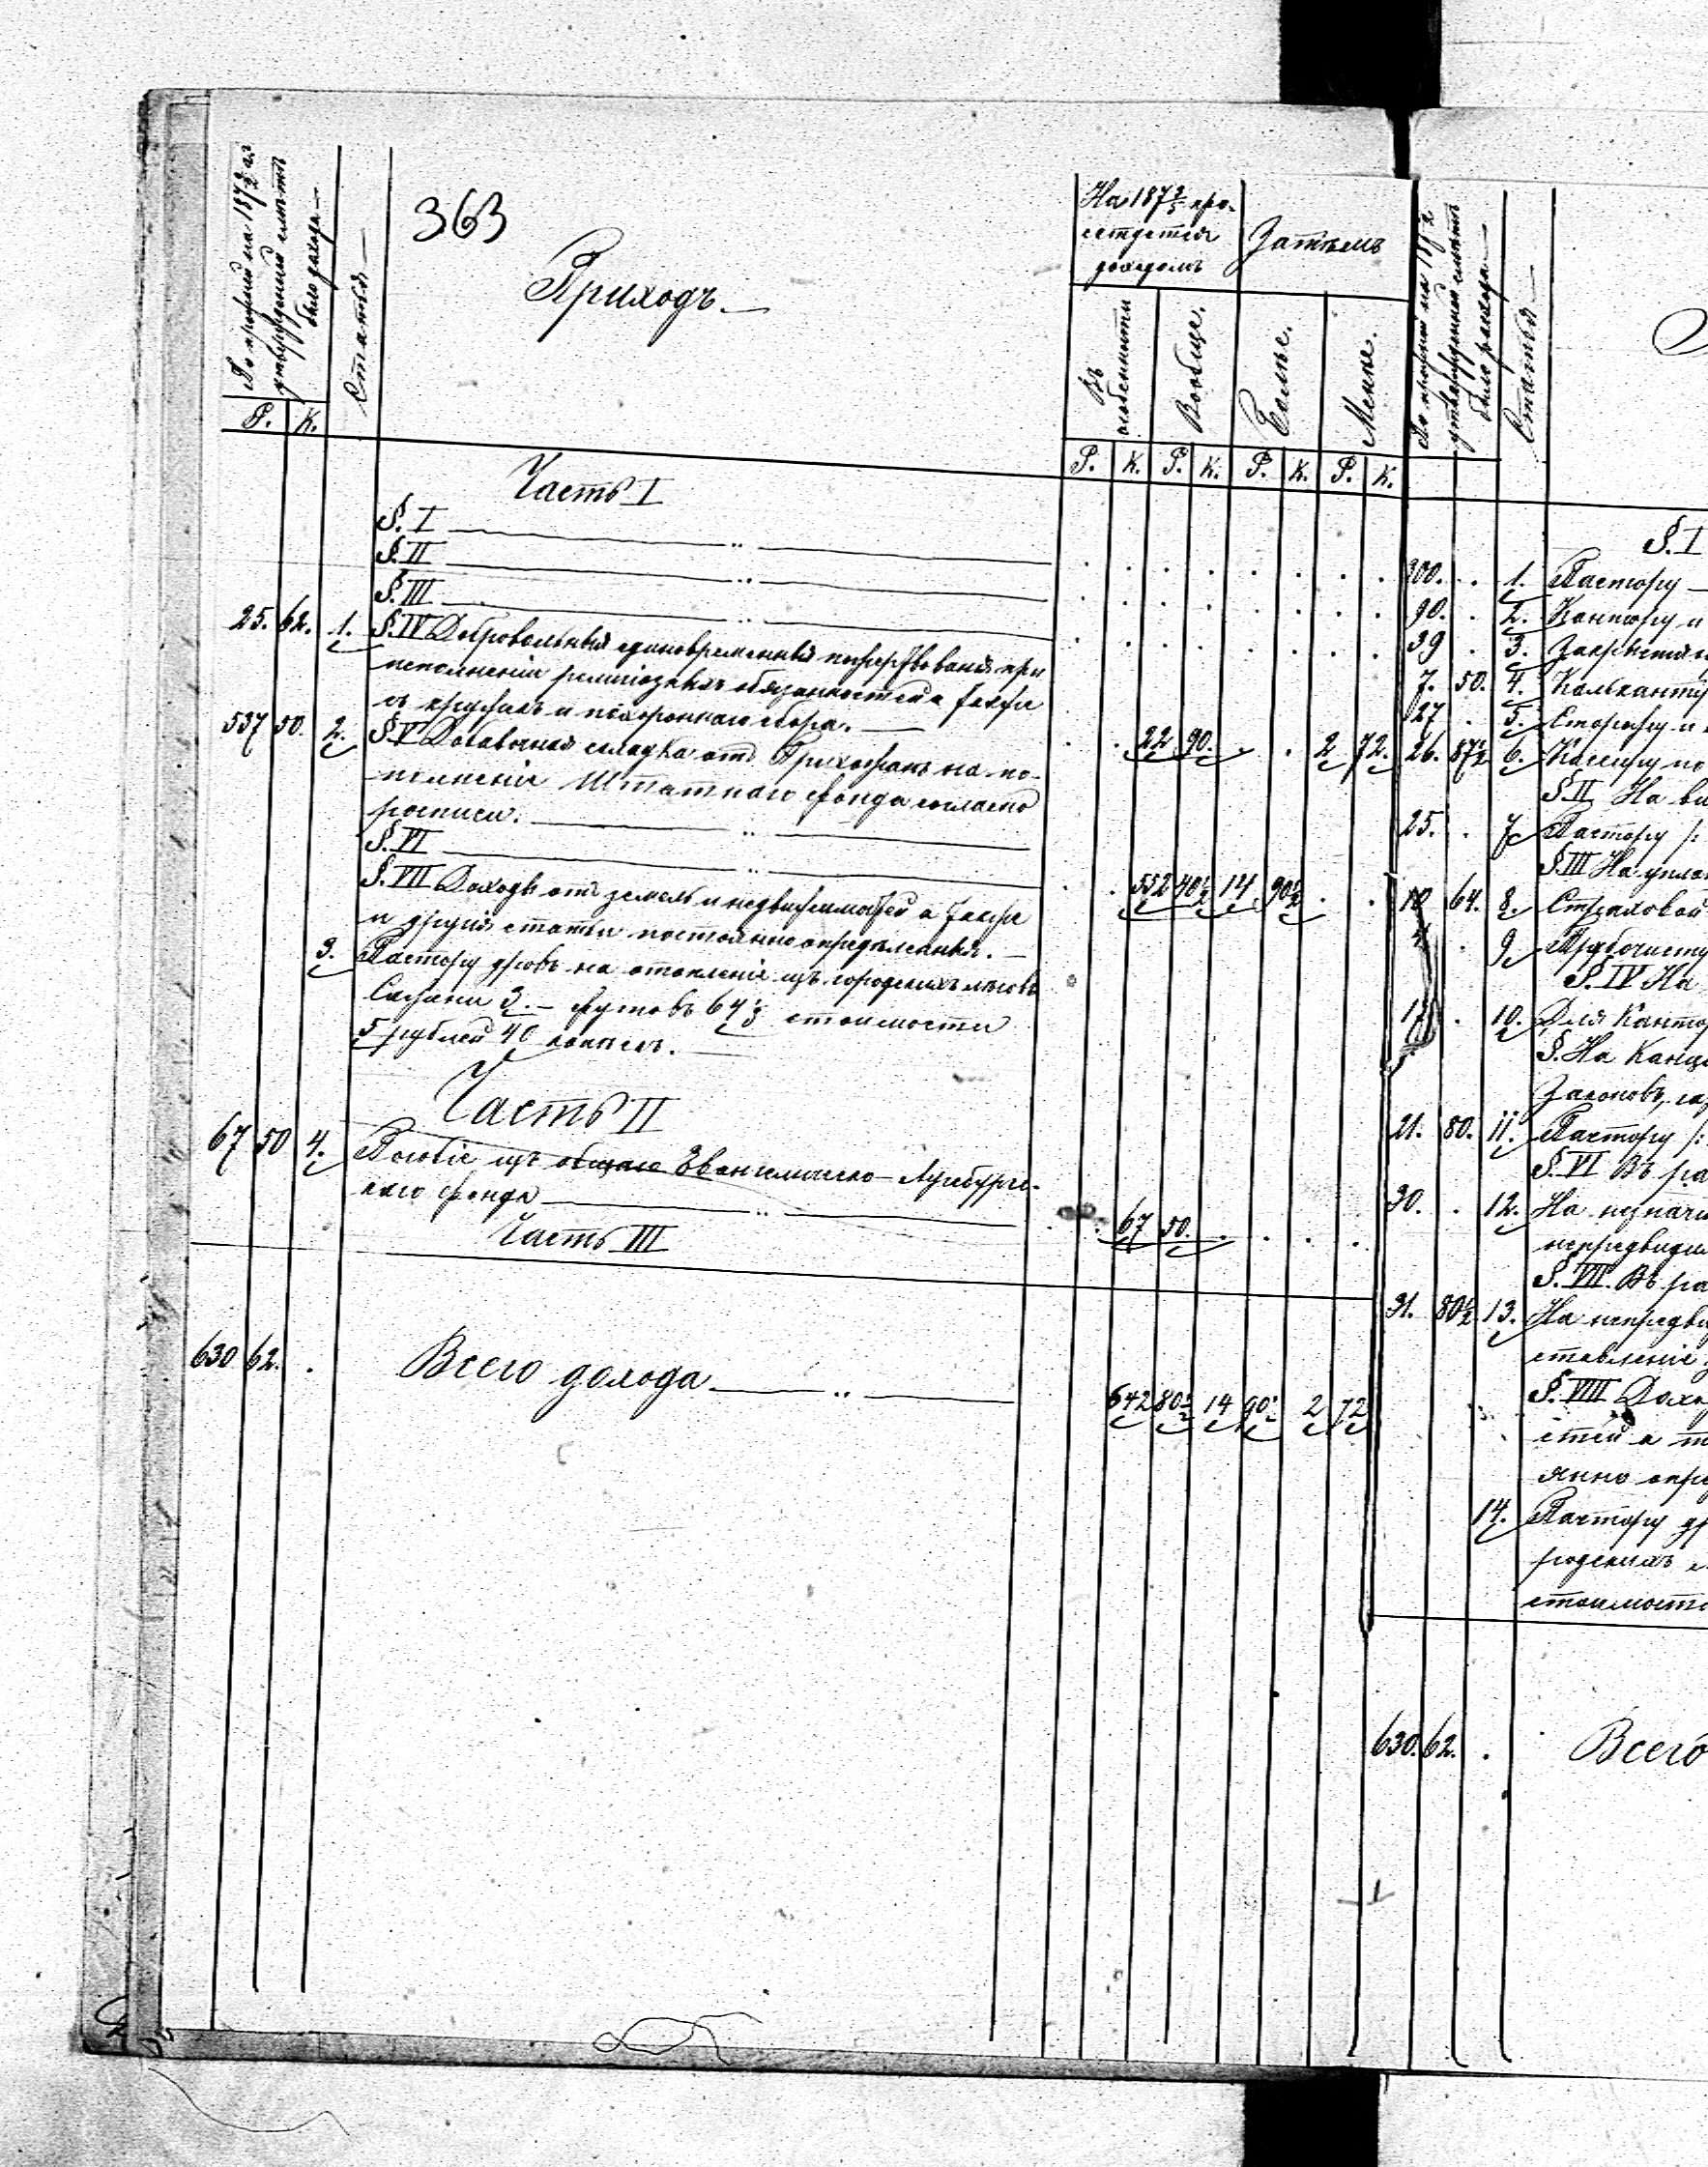 363
По прошлой на 187½ г.
утвержденной смѣтѣ
было дохода —
Статья —
Приходъ. —
На 187⅔ про-
дохомъ
Затѣмъ
Въ
особенности
Вообще.
Болѣе.
Менѣе.
Р. К.
Р. К. Р. К. Р. К. Р. К.
Часть I
§. I
§. II
§. III
25. 62. 1. §. IV Добровольныя единовременныя пожертвованія при
исполненіи религіозныхъ обязанностей а также
съ кружекъ и похороннаго сбора. — 22 90. 2 72.
537 50. 2. §. V Добавочная складка отъ Прихожанъ на по-
полненіе Штатнаго фонда согласно
росписи. 552 40½ 14 90½
§. VI
§. VII Доходъ отъ земель и недвижимостей а также
и другія статьи постоянно опредѣленныя. —
3. Пастору дровъ на отопленіе изъ городскихъ лѣсовъ
Сажени 3. — футовъ 64⅓ стоимости
5 рублей 40 копѣекъ. —
Часть II
67 50 4. Пособіе изъ общаго Евангелическо-Аугсбургс-
каго фонда 67 50.
Часть III
630 62. Всего дохода 642 80½ 14 90½ 2 72
По прошлой на 187½
утвержденной смѣтѣ
было расхода —
Статья —
§. I
300. 1. Пастору —
90. 2. Кантору и
39 3.
7. 50. 4. Кальканту
27 5. Сторожу и
26. 87½ 6. Кассиру по
§. II На
25. 7. Пастору /:
§. III На
10 64. 8. Страховой
4 9. Трубочисту
§. IV На
17 10. Для Канто
§. На Канце
Законовъ,
21. 80. 11. Пастору /:
§. VI Въ ра
30. 12. На
непредвиди
§. VII. Въ ра
31. 80½ 13. На непредви
ставленіе
§. VIII Дохо
стей а т
янно опре
14. Пастору др
родскихъ л
стоимости
630. 62. Всего